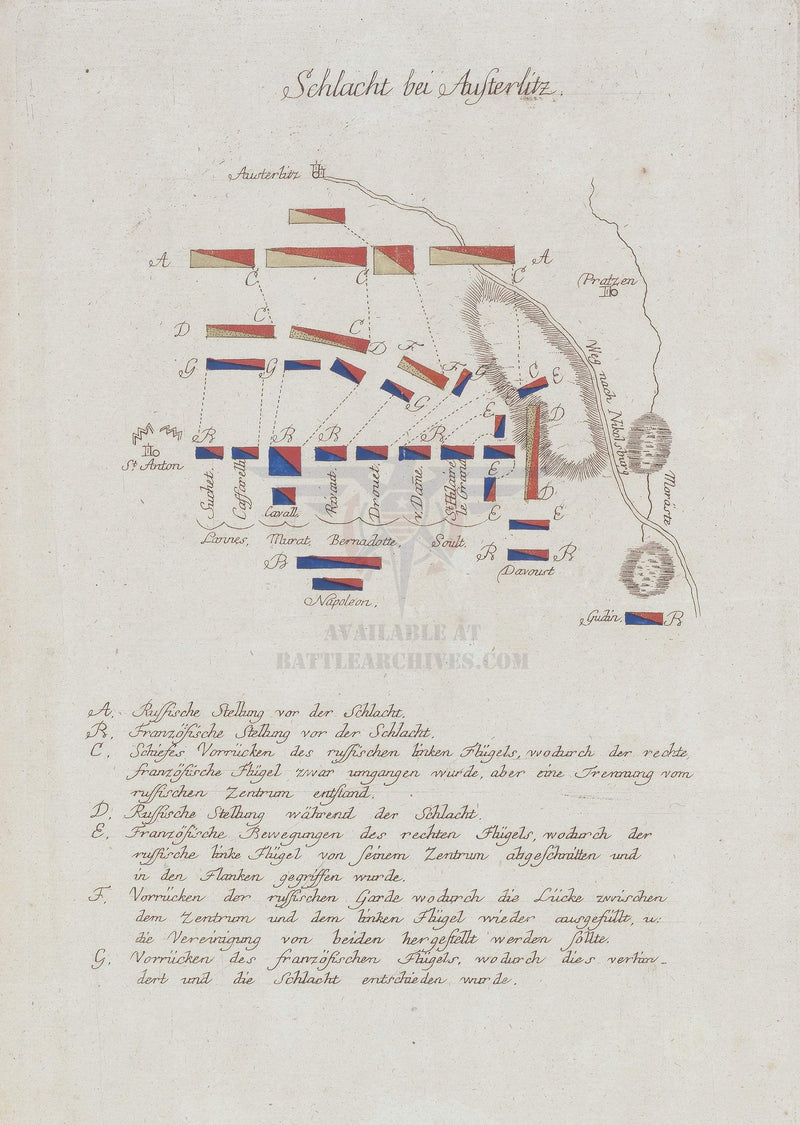 Schlacht bei Austerlitz.
Austerlitz
A C C C A
Pratzen
D C C D
G G F F G C E
Weg nach Nikolsburg
E D
R R R R
St Anton
E
Suchet.
Caffarelli
Cavall.
Rivaut.
Drouet.
v. Dame.
St Hilaire
le Grand
D
Moräste
E E E
Lannes, Murat, Bernadotte, Soult.
B
R R
Davoust
Napoleon.
Gudin. R
AVAILABLE AT
BATTLEARCHIVES.COM
A. Russische Stellung vor der Schlacht.
B. Französische Stellung vor der Schlacht.
C. Schiefes Vorrücken des russischen linken Flügels, wodurch der rechte
französische Flügel zwar umgangen wurde, aber eine Trennung vom
russischen Zentrum entstand.
D. Russische Stellung während der Schlacht.
E. Französische Bewegungen des rechten Flügels, wodurch der
russische linke Flügel von seinem Zentrum abgeschnitten und
in den Flanken gegriffen wurde.
F. Vorrücken der russischen Garde wodurch die Lücke zwischen
dem Zentrum und dem linken Flügel wieder ausgefüllt, u:
die Vereinigung von beiden hergestellt werden sollte.
G. Vorrücken des französischen Flügels, wodurch dies verhin-
dert und die Schlacht entschieden wurde.